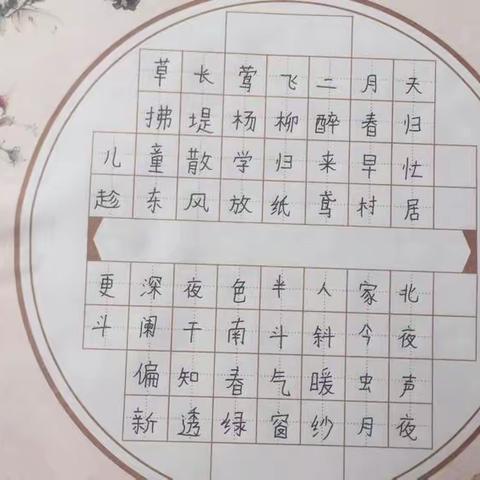 草长莺飞二月天
拂堤杨柳醉春归
儿童散学归来早忙
趁东风放纸鸢村居
更深夜色半人家北
斗阑干南斗斜今夜
偏知春气暖虫声
新透绿窗纱月夜